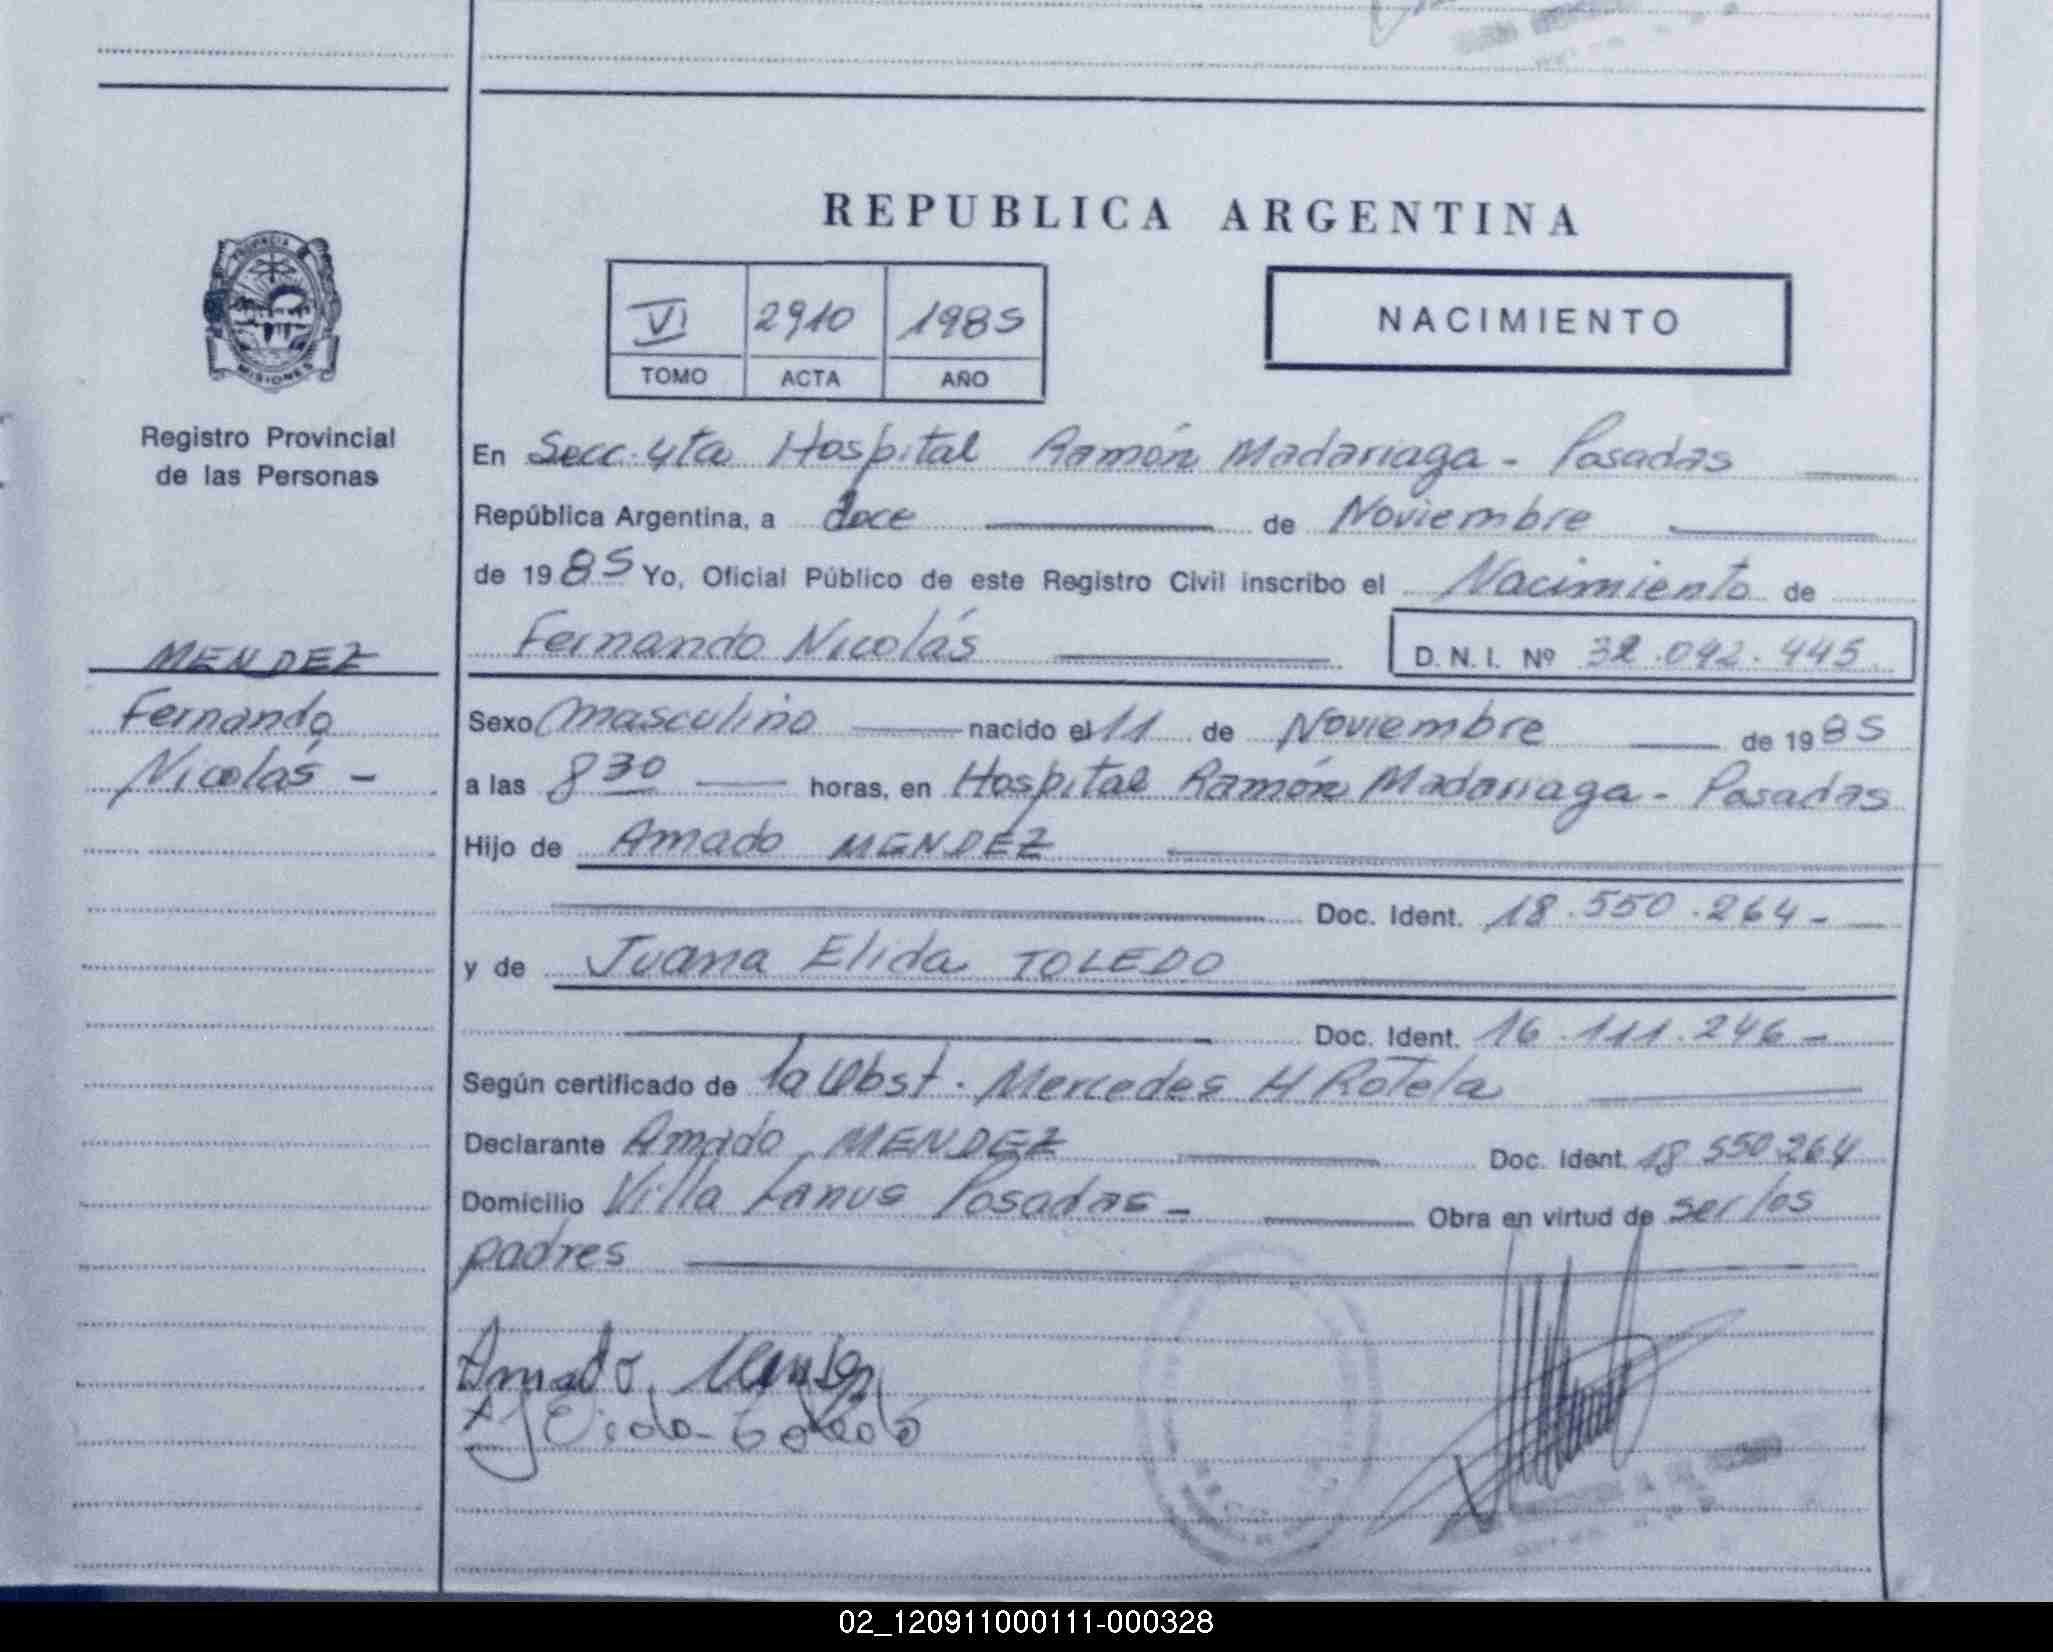 REPUBLICA ARGENTINA
PROVINCIA
MISIONES
VI 2910 1985
TOMO ACTA AÑO
NACIMIENTO
Registro Provincial
de las Personas
En Secc. 4ta Hospital Ramón Madariaga - Posadas
República Argentina, a doce de Noviembre
de 1985 Yo, Oficial Público de este Registro Civil inscribo el Nacimiento de
Fernando Nicolás D. N. I. Nº 32.092.445
MENDEZ
Fernando
Nicolás -
Sexo Masculino nacido el 11 de Noviembre de 1985
a las 8 30 horas, en Hospital Ramón Madariaga - Posadas
Hijo de Amado MENDEZ
Doc. Ident. 18.550.264 -
y de Juana Elida TOLEDO
Doc. Ident. 16.111.246 -
Según certificado de la Obst. Mercedes H Rotela
Declarante Amado MENDEZ Doc. Ident. 18 550.264
Domicilio Villa Lanus Posadas - Obra en virtud de ser los
padres
Amado Mendez
02_120911000111-000328